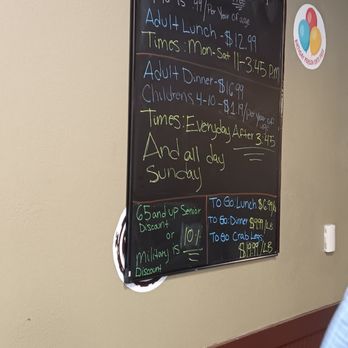 is .99/Per Year of age
Adult Lunch - $12.99
Times: Mon-Sat 11-3:45 P.M
Adult Dinner - $16.99
Childrens 4-10 - $1.19/per year of
Times: Everyday After 3:45
And all day
Sunday
65 and up Senior
Discount
or
Military is 10%
Discount
To Go Lunch $6.99/lb
To Go: Dinner $9.99/LB
To Go Crab Legs
$19.99/LB